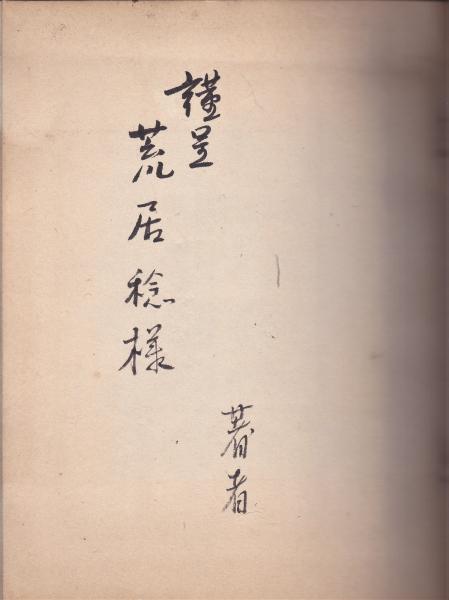 謹呈
荒居稔様
著者